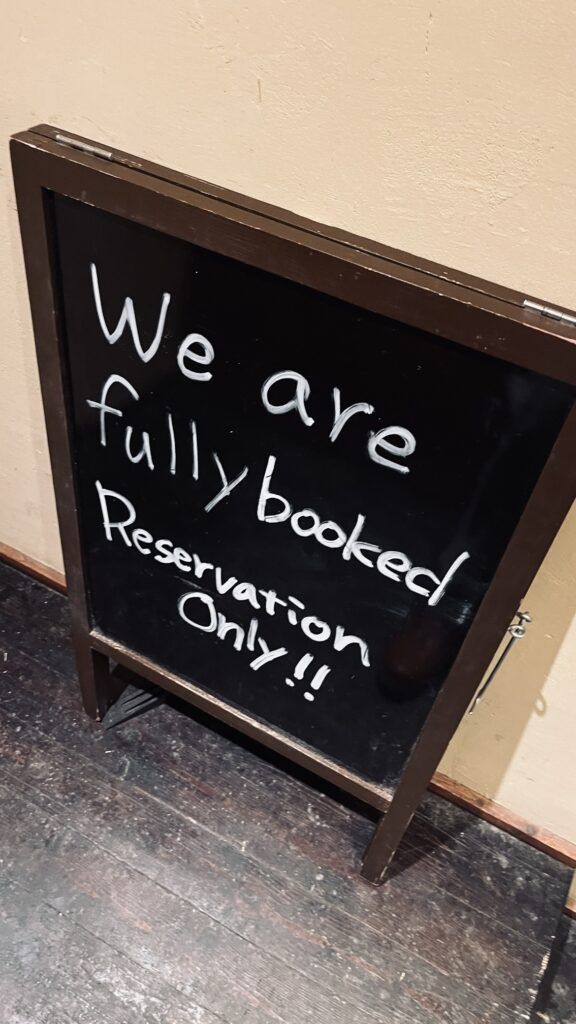 We are
fully booked
Reservation
Only!!